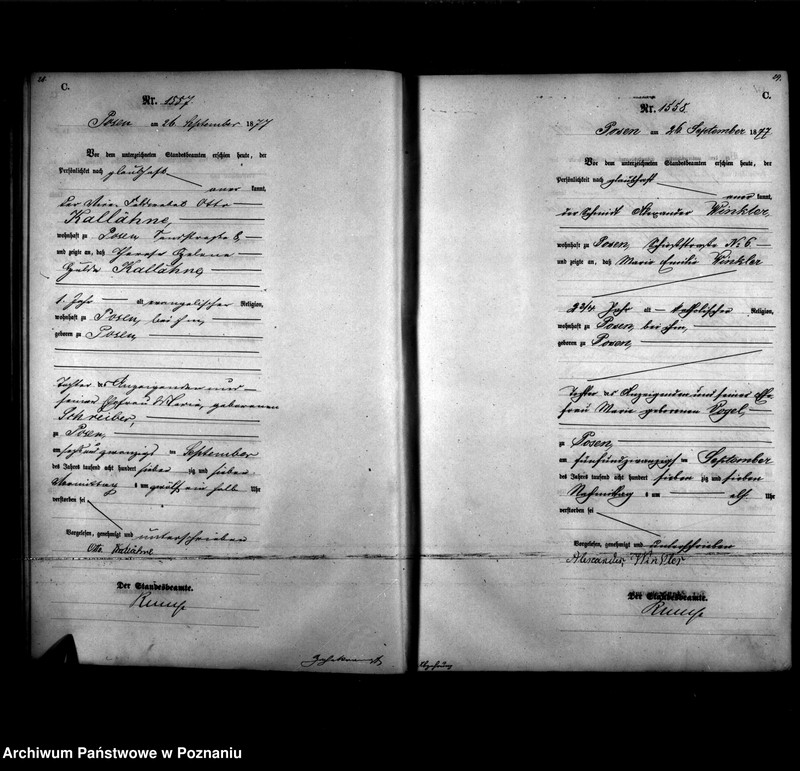 C.
Nr. 1557.
Posen am 26 September 1877
Vor dem unterzeichneten Standesbeamten erschien heute, der
Persönlichkeit nach glaubhaft
aner kannt,
Otto
Kallähne,
wohnhaft zu Posen
und zeigte an, daß Helene
Kallähne
1 Jahr alt, evangelischer Religion,
wohnhaft zu Posen, bei ihm,
geboren zu Posen,
Tochter des Anzeigenden und
seiner Ehefrau Maria, geborenen
Schreiber,
zu Posen,
am September
des Jahres tausend acht hundert sieben zig und sieben
Vormittag um zwölf ein halb Uhr
verstorben sei
Vorgelesen, genehmigt und unterschrieben
Otto Kallähne
Der Standesbeamte.
29.
C.
Nr. 1558.
Posen am 26 September 1877
Vor dem unterzeichneten Standesbeamten erschien heute, der
Persönlichkeit nach glaubhaft
aner kannt,
der Schmidt Alexander Winkler,
wohnhaft zu Posen, No 6
und zeigte an, daß Marie Emilie Winkler
2 3/4 Jahr alt katholischer Religion,
wohnhaft zu Posen, bei ihm,
geboren zu Posen,
Tochter des Anzeigenden und seiner Ehe
frau Marie geborenen Vogel,
zu Posen,
am fünfundzwanzigsten September
des Jahres tausend acht hundert sieben zig und sieben
Nachmittag um elf Uhr
verstorben sei
Vorgelesen, genehmigt und unterschrieben
Alexander Winkler
Der Standesbeamte.
Archiwum Państwowe w Poznaniu